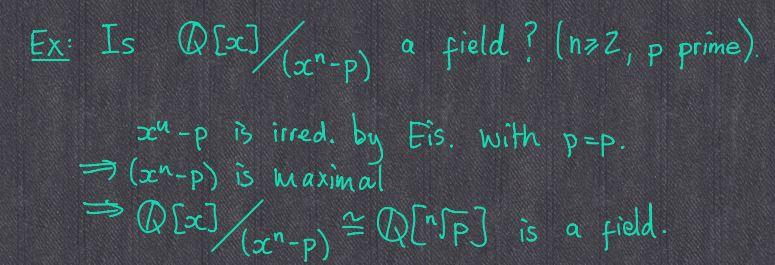 Ex: Is ℚ[x]/(xⁿ-p) a field? (n≥2, p prime).
xⁿ-p is irred. by Eis. with p=p.
⇒ (xⁿ-p) is maximal
⇒ ℚ[x]/(xⁿ-p) ≅ ℚ[ⁿ√p] is a field.